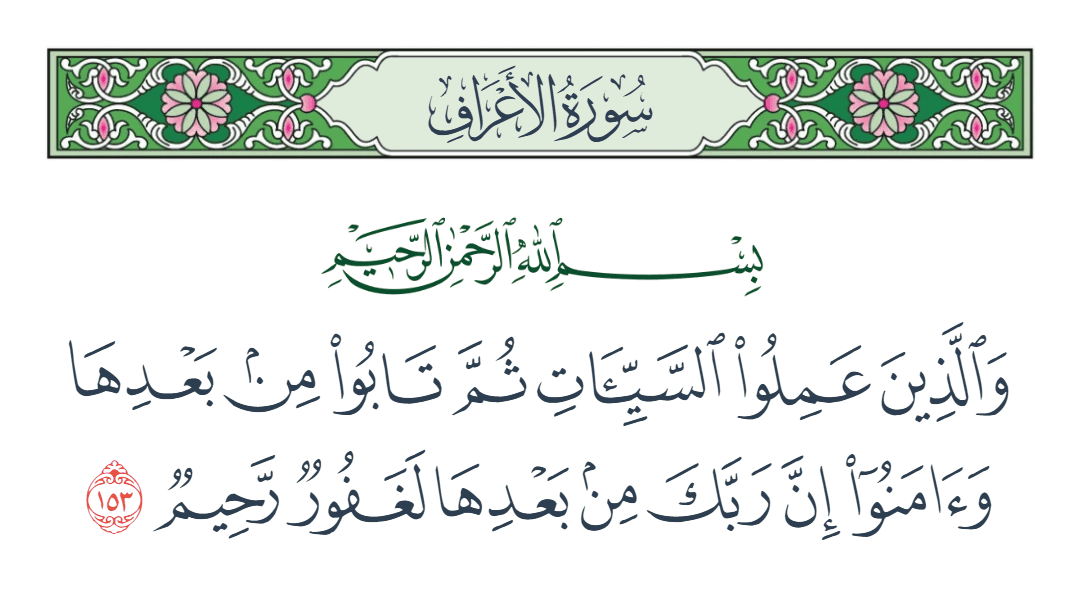 سُورَةُ الأَعْرَافِ
بِسْمِ ٱللَّهِ ٱلرَّحْمَٰنِ ٱلرَّحِيمِ
وَٱلَّذِينَ عَمِلُوا۟ ٱلسَّيِّـَٔاتِ ثُمَّ تَابُوا۟ مِنۢ بَعْدِهَا
وَءَامَنُوٓا۟ إِنَّ رَبَّكَ مِنۢ بَعْدِهَا لَغَفُورٌ رَّحِيمٌ ١٥٣